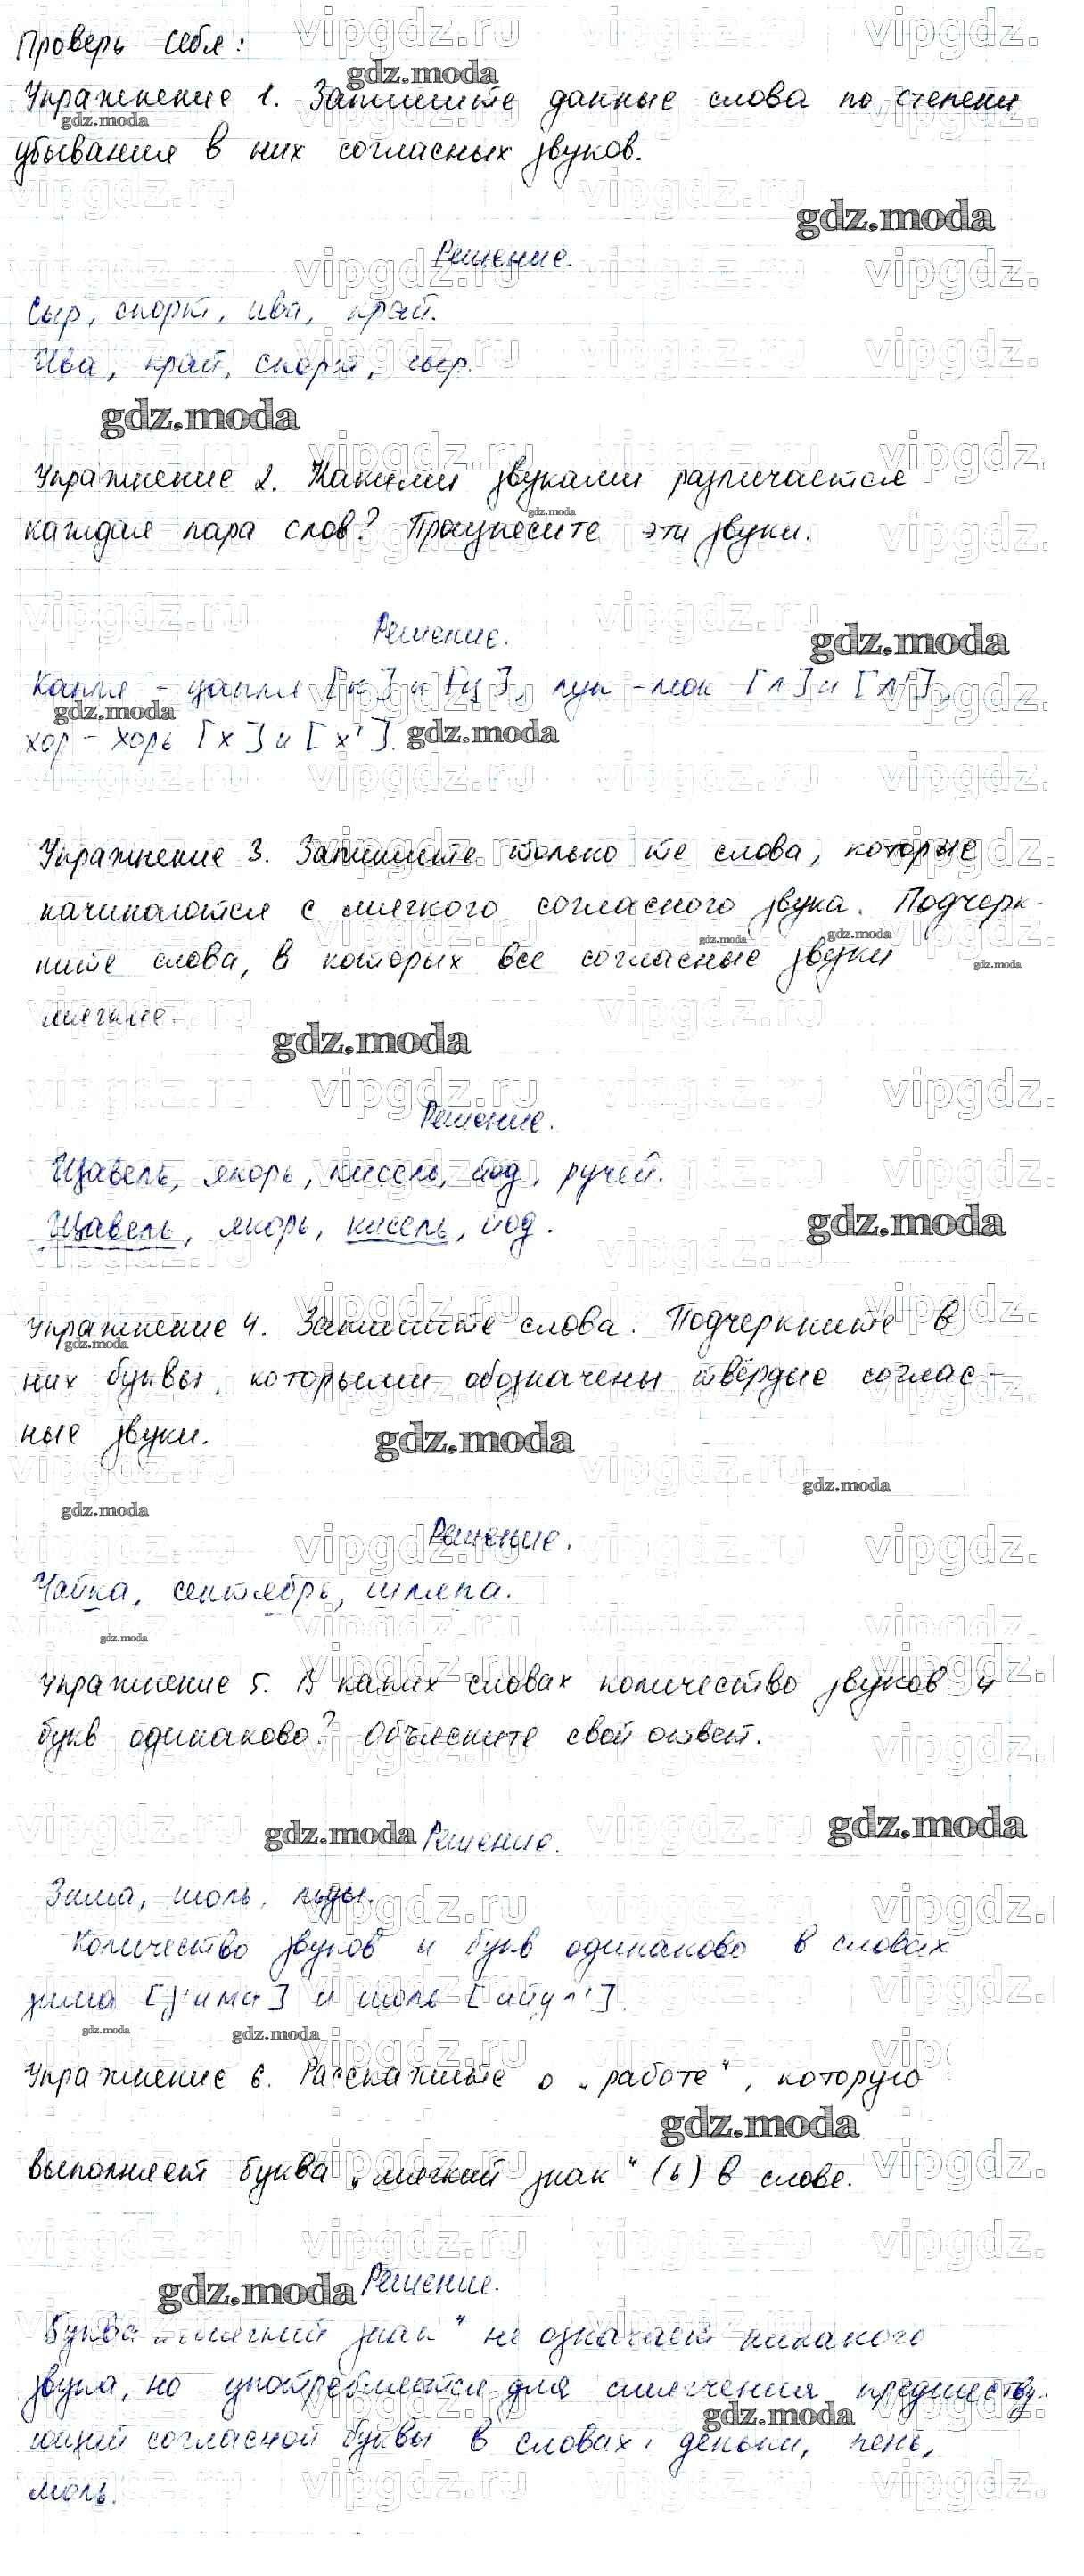 Проверь себя:
Упражнение 1. Запишите данные слова по степени
убывания в них согласных звуков.
Решение.
Сыр, спорт, ива, край.
Ива, край, спорт, сыр.
Упражнение 2. Какими звуками различается
каждая пара слов? Произнесите эти звуки.
Решение.
Капля - цапля [к] и [ц], лук - люк [л] и [л'],
хор - хорь [х] и [х'].
Упражнение 3. Запишите только те слова, которые
начинаются с мягкого согласного звука. Подчерк-
ните слова, в которых все согласные звуки
мягкие.
Решение.
Щавель, якорь, кисель, йод, ручей.
Щавель, якорь, кисель, йод.
Упражнение 4. Запишите слова. Подчеркните в
них буквы, которыми обозначены твёрдые соглас-
ные звуки.
Решение.
Чайка, сентябрь, шляпа.
Упражнение 5. В каких словах количество звуков и
букв одинаково? Объясните свой ответ.
Решение.
Зима, июль, льды.
Количество звуков и букв одинаково в словах
зима [з'има] и июль [ийул'].
Упражнение 6. Расскажите о „работе“, которую
выполняет буква „мягкий знак“ (ь) в слове.
Решение.
Буква „мягкий знак“ не означает никакого
звука, но употребляется для смягчения предшеству-
ющей согласной буквы в словах: деньки, пень,
моль.
gdz.moda
vipgdz.ru